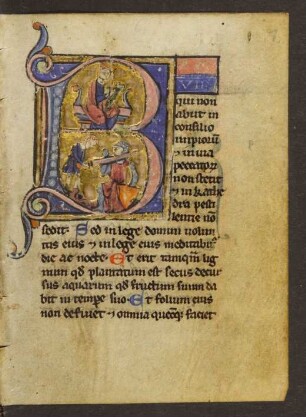 B
qui non
abiit in
consilio
impioru͞
⁊ in uia
peccator͞
non stetit
⁊ in kathe
dra pesti
lentie no͞
sedit. Sed in lege domini uolun
tas eius ⁊ in lege eius meditabit͞
die ac nocte. Et erit tanq͞m lig
num qd͞ plantatum est secus decur
sus aquarum qd͞ fructum suum da
bit in tempe suo. Et folium eius
non defluet ⁊ omnia quecq͞ faciet